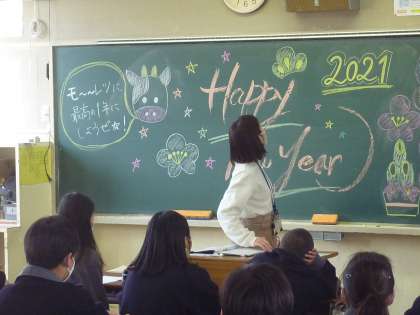 モ〜〜レツに
最高の1年に
しようぜ☆!
Happy
New Year
2021